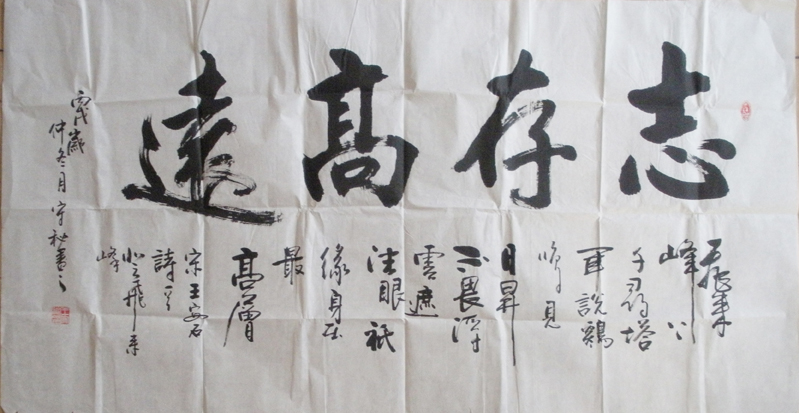 志存髙遠
飛來
峰上
千尋塔
聞說鷄
鳴見
日昇
不畏浮
雲遮
望眼祇
緣身在
最
髙層
宋王安石
詩
登飛來
峰
丙戌歲
仲冬月守書